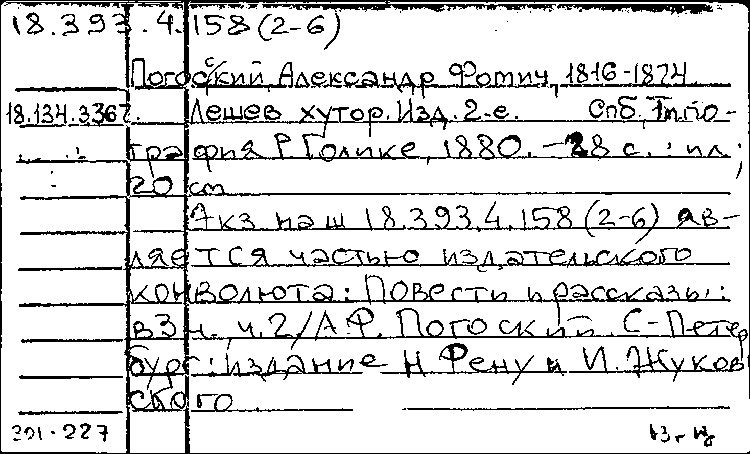 18.393.4.158(2-6)
Погосский, Александр Фомич, 1816-1874
18.134.3.367. Лешев хутор. Изд. 2-е. Спб, Типо-
графия Р. Голике, 1880. - 28 с. : ил.;
20 cm
Экз наш 18.393.4.158(2-6) яв-
ляется частью издательского
конволюта: Повести и рассказы:
в 3 ч., ч.2/А.Ф. Погоский. С-Петер
бург: издание Н Фену и И. Жуков
ского
301-227